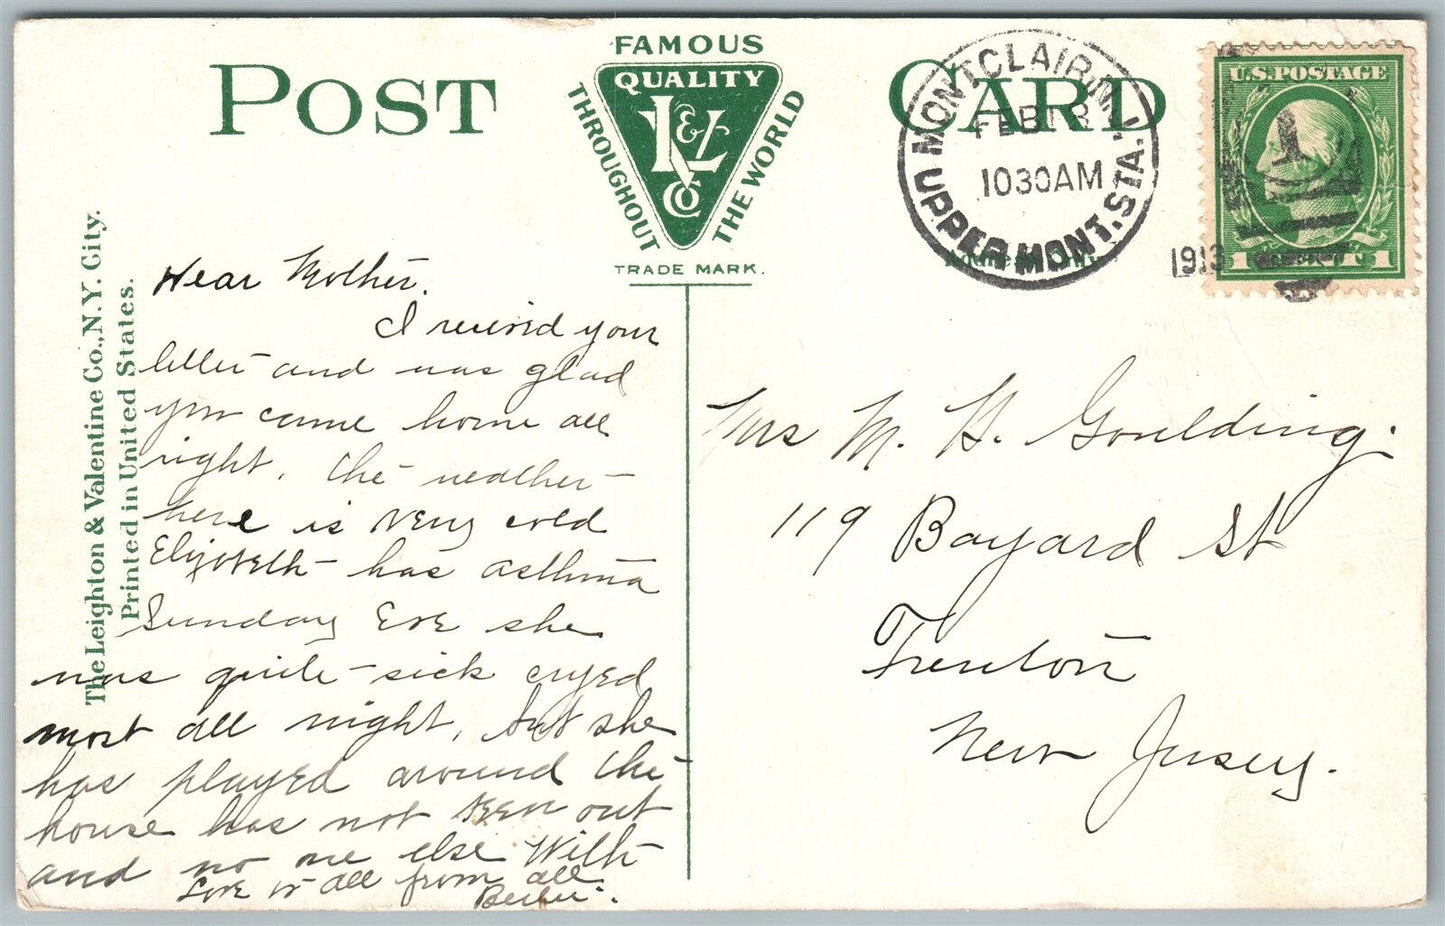 POST CARD
FAMOUS
QUALITY
THROUGHOUT
THE WORLD
L&V
Co
TRADE MARK.
MONTCLAIR, N.J.
FEB 13
1030AM
UPPER MONT. STA.
1913
U.S. POSTAGE
1 1
The Leighton & Valentine Co., N.Y. City.
Printed in United States.
Dear Mother.
I recived your
letter and was glad
you came home all
right. the weather
here is very cold
Elizabeth has asthma
Sunday Eve she
was quite sick cryed
most all night, but she
has played around the
house has not been out
and no one else With
Love to all from all
Mrs M. H. Goulding.
119 Bayard St
Trenton
New Jersey.